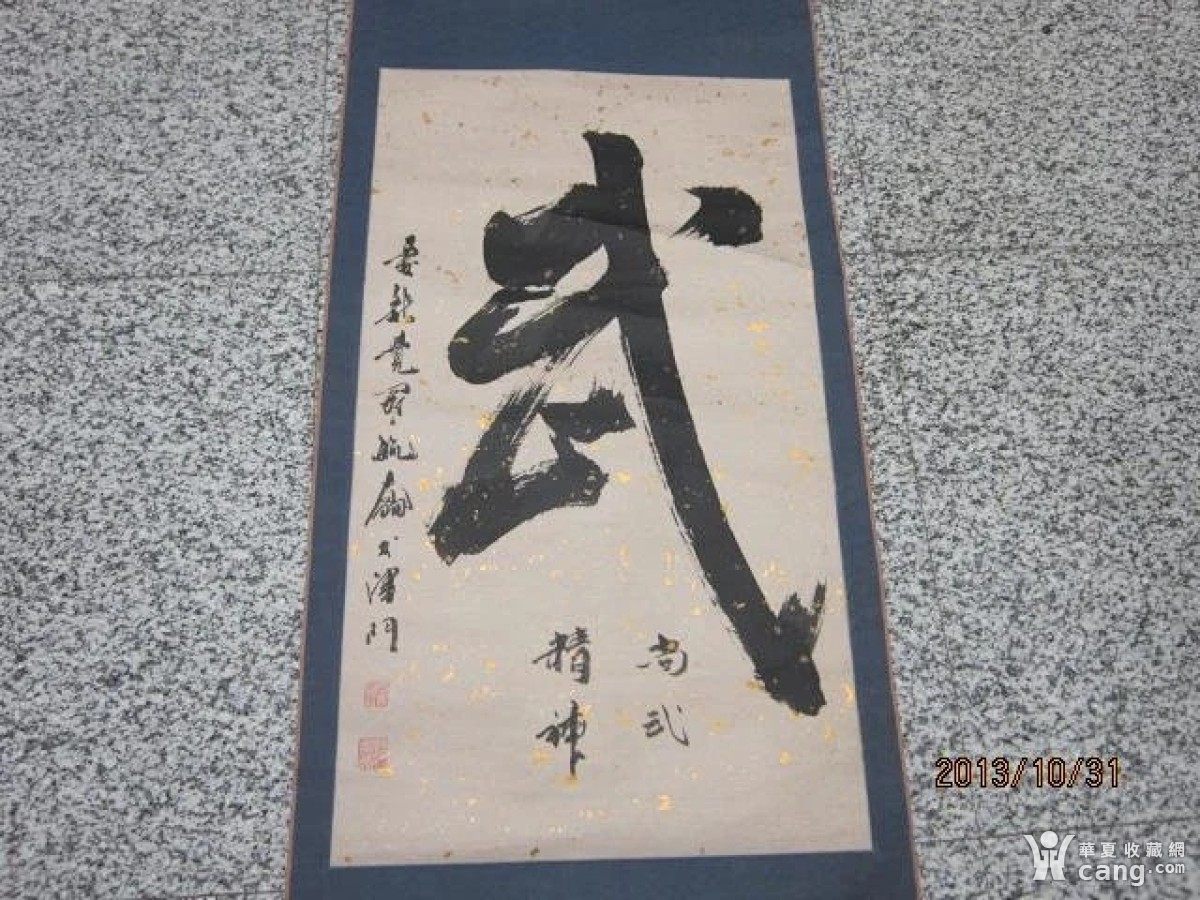 武
尚武
精神
爱新觉罗·毓 书
2013/10/31
華夏收藏網
cang.com